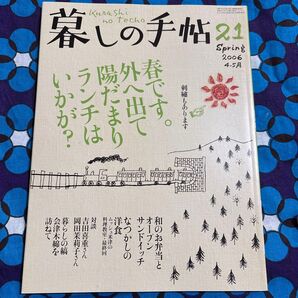 kurashi no techo
暮しの手帖 21
Spring
2006
4-5月
春です。
外へ出て
陽だまり
ランチは
いかが？
刺繍ものります
和のお弁当と
オープン
サンドイッチ
なつかしの
洋食
対談
吉田喜重さん
岡田茉莉子さん
暮らしの縞
会津木綿を
訪ねて